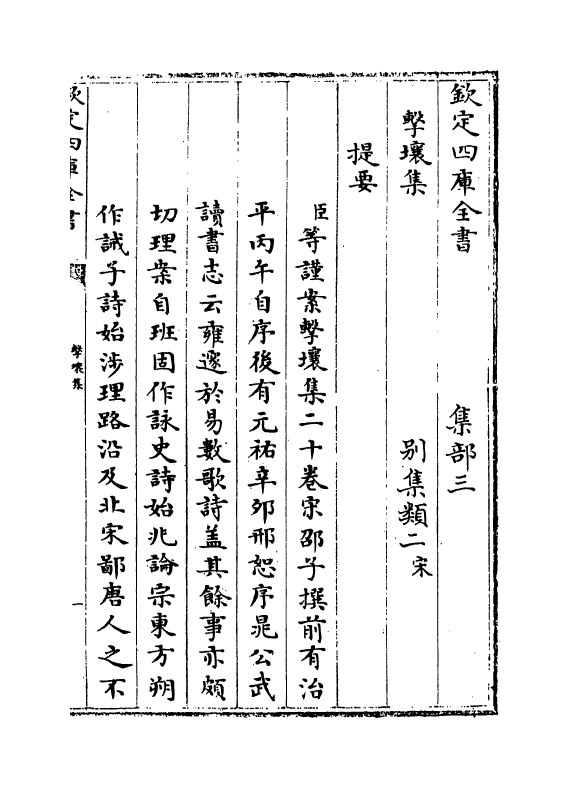 欽定四庫全書　集部三
擊壤集　别集類二宋
提要
臣等謹案擊壤集二十卷宋邵子撰前有治
平丙午自序後有元祐辛夘邢恕序晁公武
讀書志云雍邃於易數歌詩盖其餘事亦頗
切理案自班固作詠史詩始兆論宗東方朔
作誡子詩始涉理路沿及北宋鄙唐人之不
欽定四庫全書
擊壤集
一